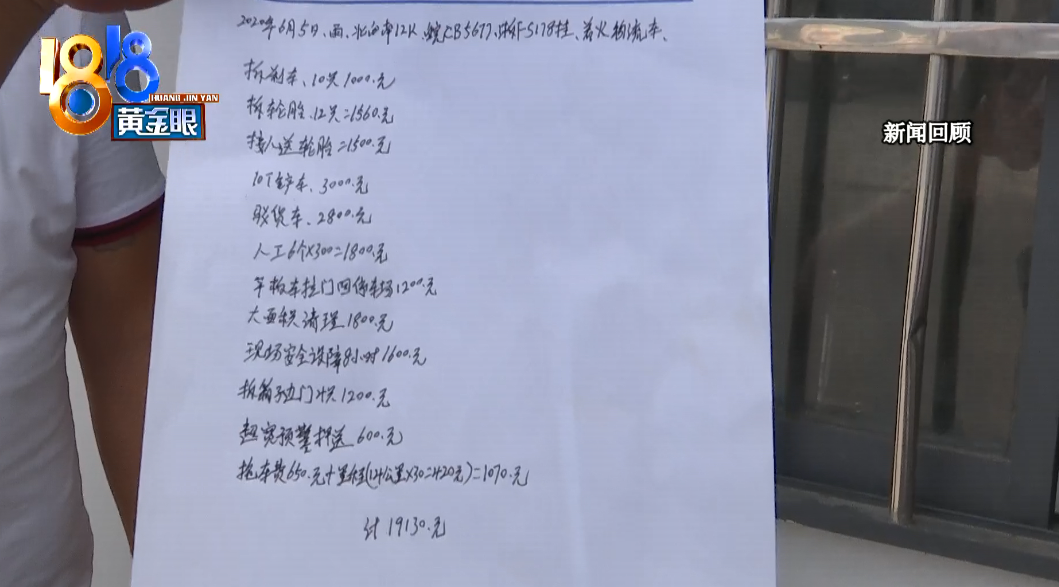 1818
HUANG JIN YAN
黄金眼
新闻回顾
2020年6月5日、西、北向南12K、皖CB5677、 5178挂、着火物流车、
拆刹车、10只1000.元
拆轮胎、12只=1560.元
接人送轮胎=1500.元
10T铲车、3000.元
驳货车、2800.元
人工6个X300=1800.元
平板车拉门回停车场1200.元
大面积清理1800.元
现场安全设障8小时1600.元
拆箱子边门 1200.元
超宽预警押送 600.元
拖车费650.元+里程(14公里X30=420元)=1070.元
计19130.元